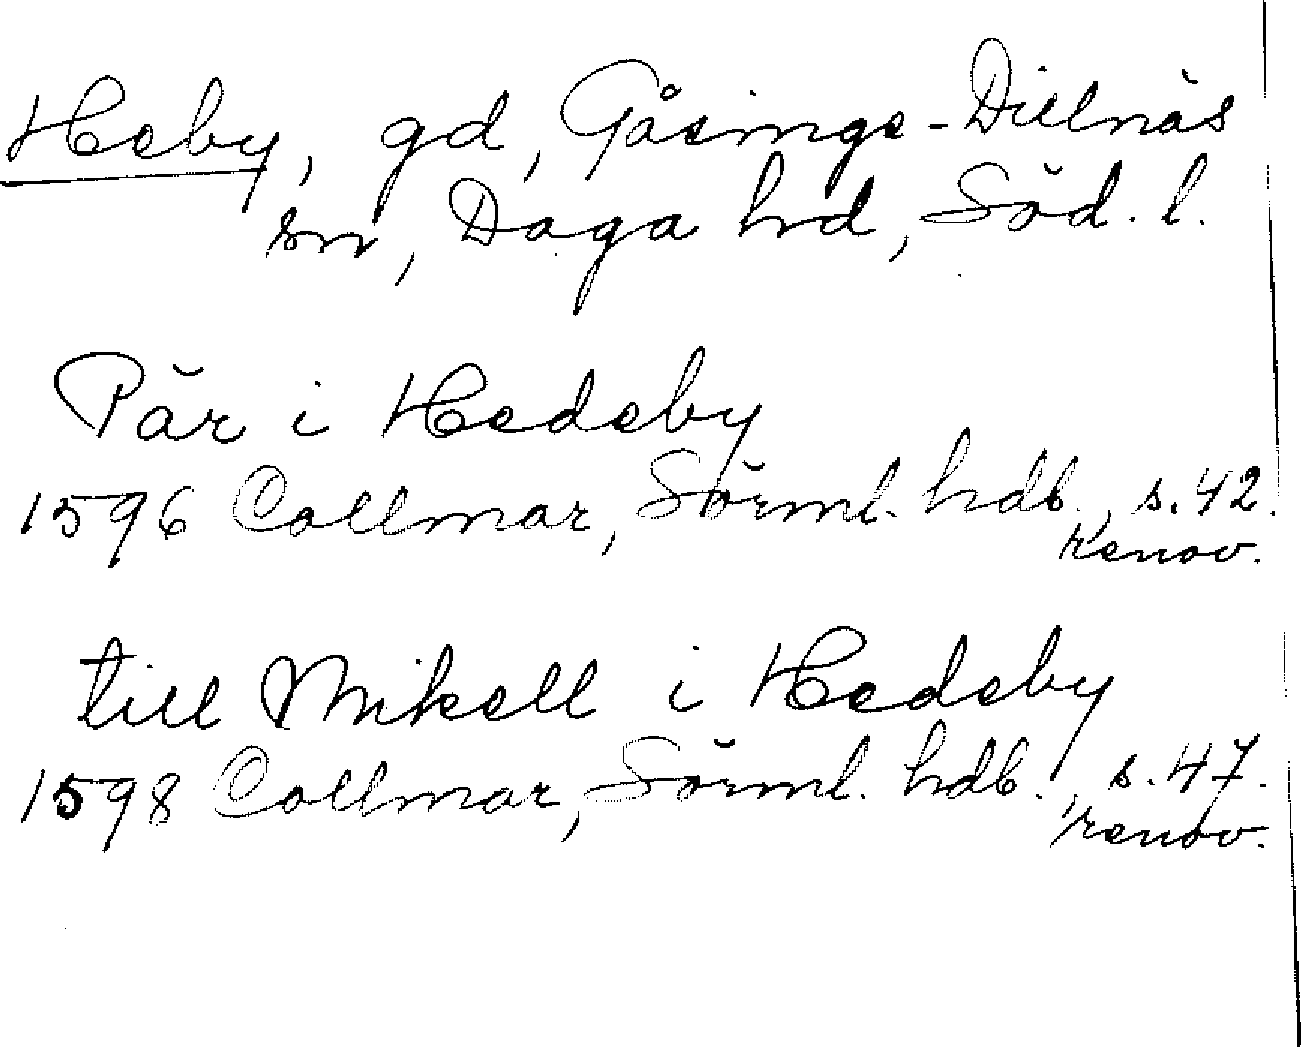 Heby, gd, Gåsinge-Dillnäs
sn, Daga hd, Söd. l.
Pär i Hedeby
1596 Collmar, Sörml. hdb., s. 42.
renov.
till Mikell i Hedeby
1598 Collmar, Sörml. hdb., s. 47.
renov.